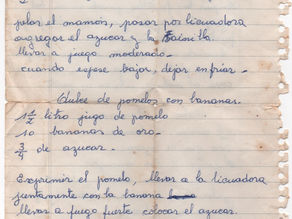 pelar el mamón, pasar por licuadora
agregar el azucar y la vainilla.
llevar a fuego moderado.
cuando espese bajar, dejar enfriar.
Dulce de pomelos con bananas.
1 1/2 litro jugo de pomelo
10 bananas de oro.
3/4 de azucar.
Exprimir el pomelo, llevar a la licuadora
juntamente con la banana
llevar a fuego fuerte colocar el azucar.